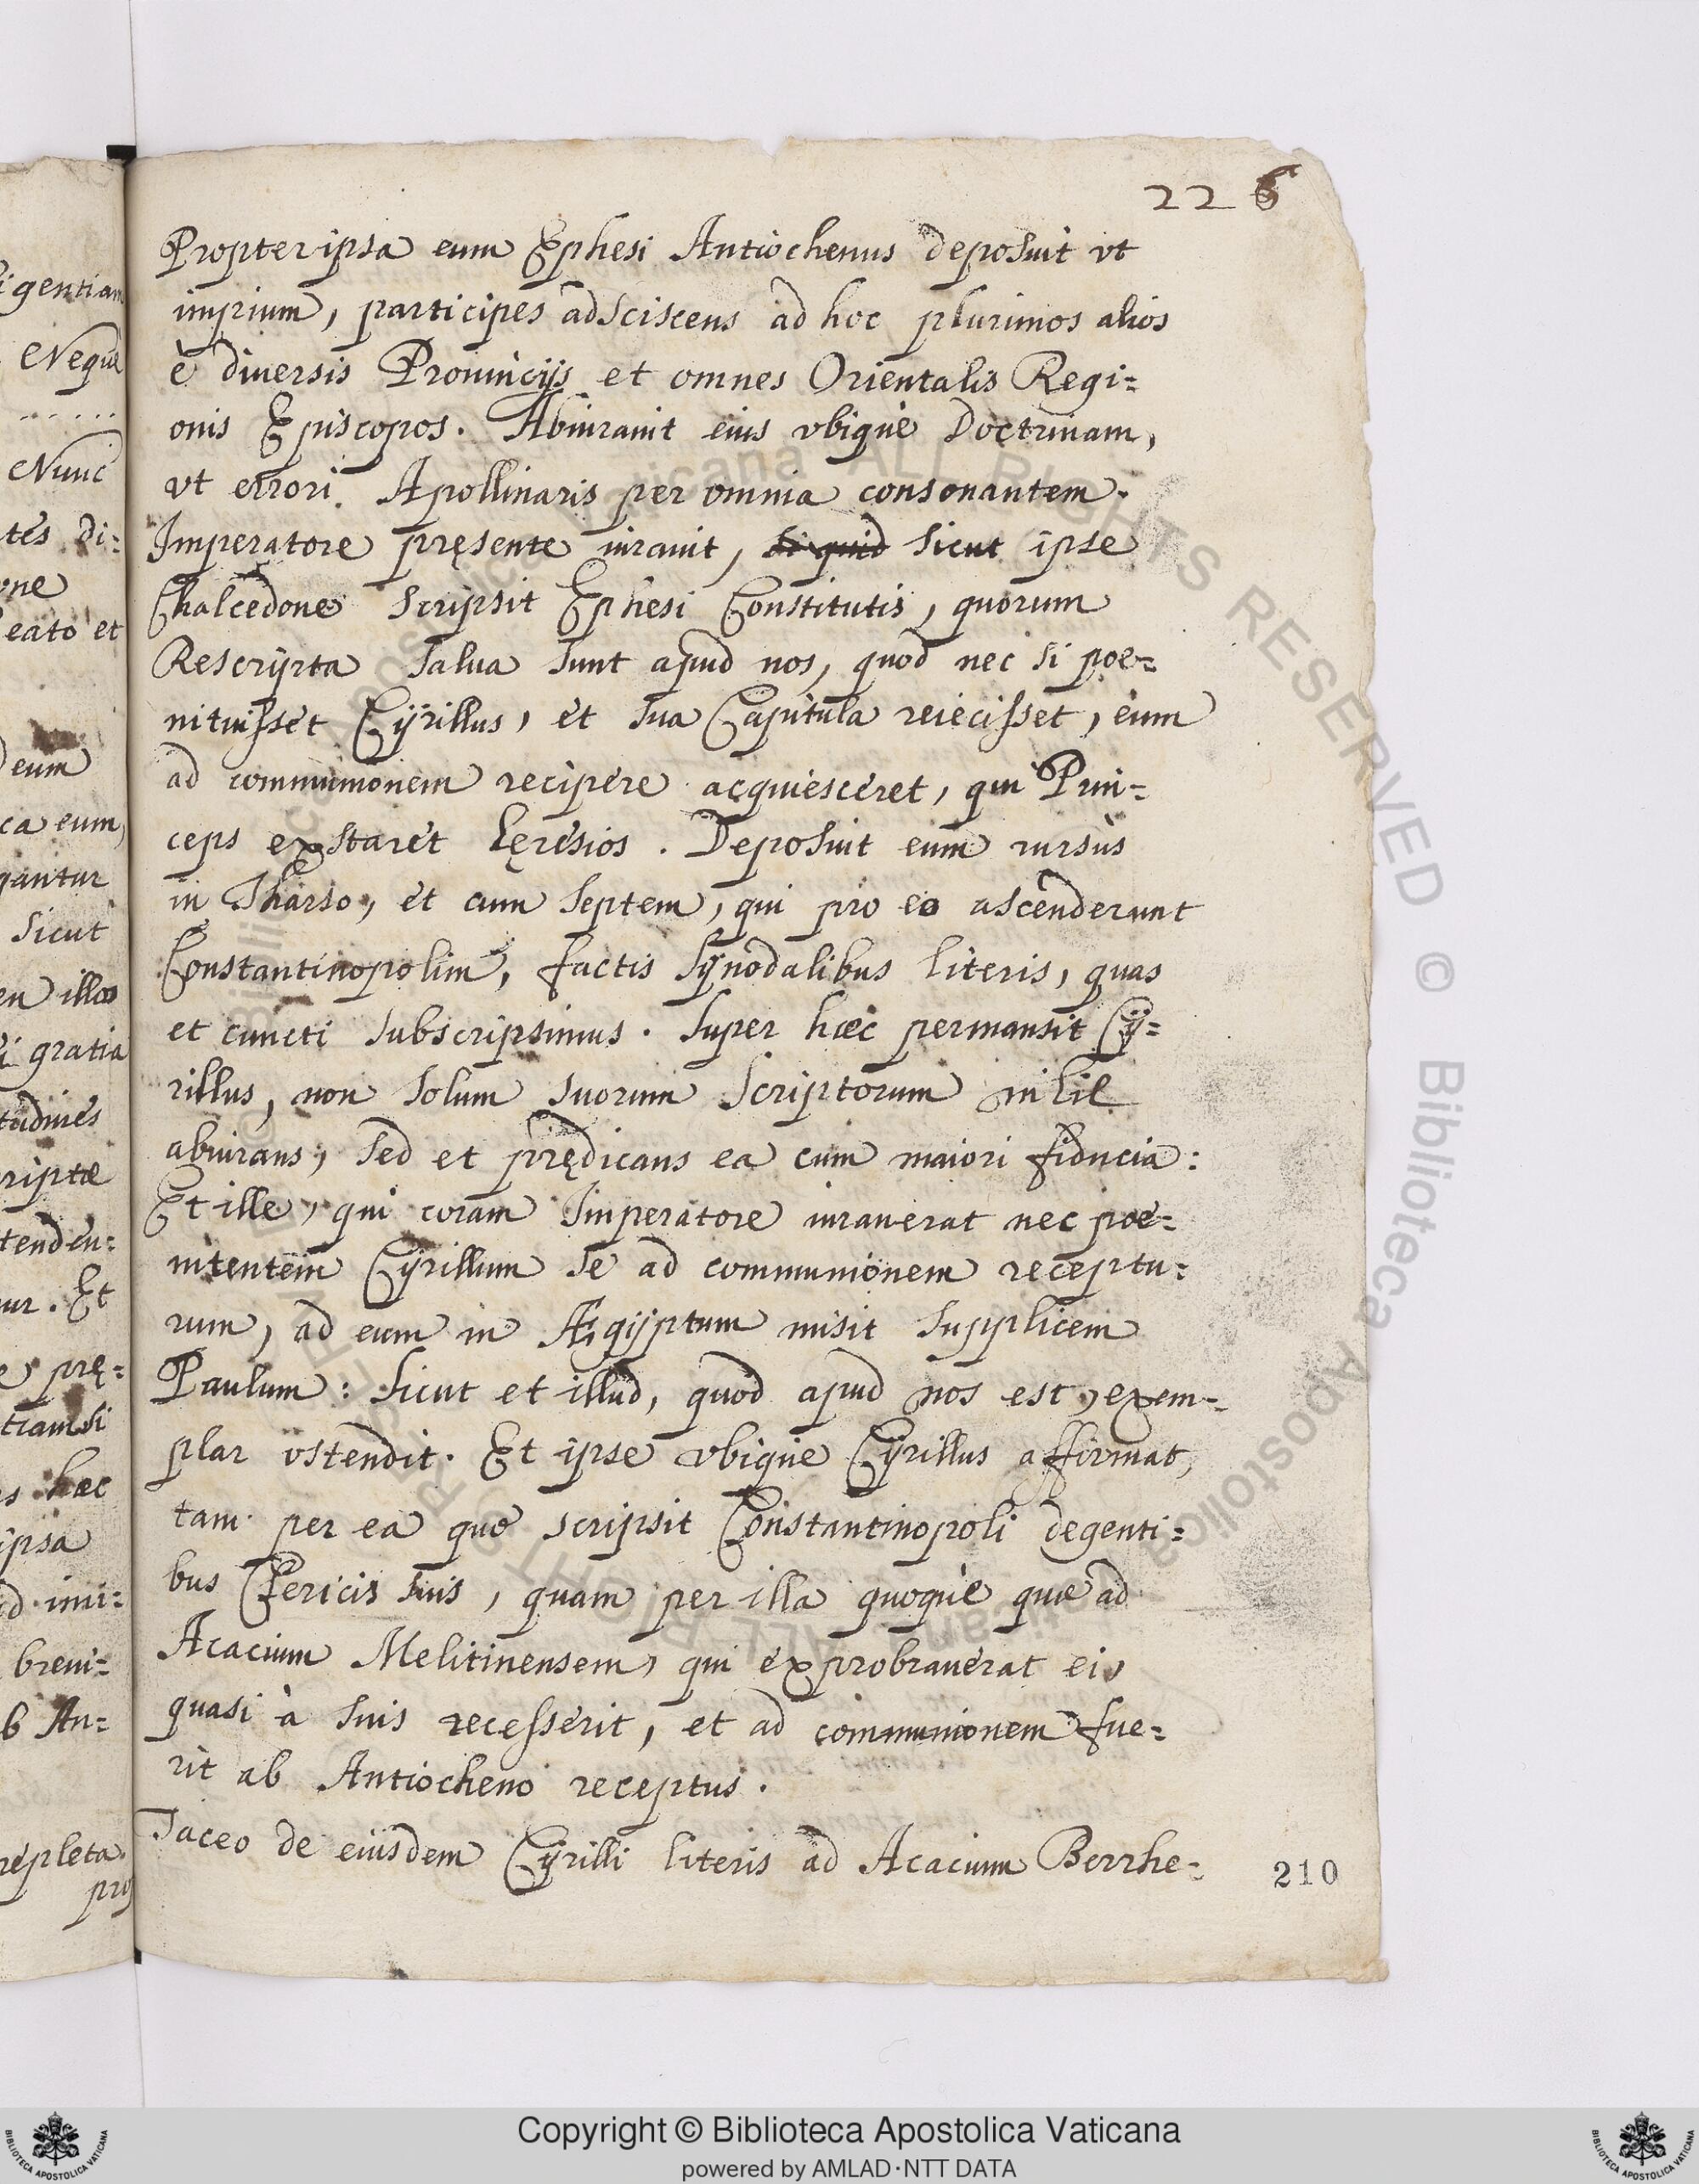 226
Propter ipsa eum Ephesi Antiochenus deposuit vt
impium, participes adsciscens ad hoc plurimos alios
è diuersis Prouincijs et omnes Orientalis Regi=
onis Episcopos. Abiurauit eius vbique Doctrinam,
vt errori Apollinaris per omnia consonantem.
Imperatore pręsente iurauit, si quid sicut ipse
Chalcedone scripsit Ephesi Constitutis, quorum
Rescripta salua sunt apud nos, quod nec si poe=
nituisset Cyrillus, et sua Capitula reiecisset, eum
ad communionem recipere acquiesceret, qui Prin=
ceps exstaret hęresios. Deposuit eum rursus
in Tharso, et cum septem, qui pro eo ascenderunt
Constantinopolim, factis synodalibus literis, quas
et cuncti subscripsimus. Super hæc permansit Cy=
rillus, non solum suorum scriptorum nihil
abiurans, sed et prędicans ea cum maiori fiducia:
Et ille, qui coram Imperatore iurauerat nec poe=
nitentem Cyrillum se ad communionem receptu=
rum, ad eum in Ægyptum misit supplicem
Paulum: sicut et illud, quod apud nos est, exem=
plar ostendit. Et ipse vbique Cyrillus affirmat,
tam per ea quæ scripsit Constantinopoli degenti=
bus Clericis suis, quam per illa quoque quæ ad
Acacium Melitinensem, qui exprobrauerat ei,
quasi à suis recesserit, et ad communionem fue=
rit ab Antiocheno receptus.
Taceo de eiusdem Cyrilli literis ad Acacium Berrhe=
210
igentiam
Neque
......
Nunc
tes di:
one
eato et
eum
ca eum,
gantur
sicut
en illas
gratia
tudines
riptæ
tenden:
ur. Et
prę=
tiamsi
s hæc
ipsa
d imi=
breui=
b An=
repleta.
pro
© Biblioteca Apostolica Vaticana ALL RIGHTS RESERVED
Copyright © Biblioteca Apostolica Vaticana
powered by AMLAD·NTT DATA
BIBLIOTECA APOSTOLICA VATICANA
BIBLIOTECA APOSTOLICA VATICANA